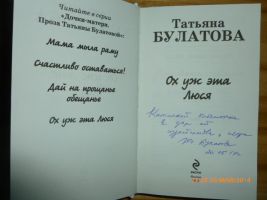 Читайте в серии
«Дочки-матери.
Проза Татьяны Булатовой»:
Мама мыла раму
Счастливо оставаться!
Дай на прощанье
обещанье
Ох уж эта Люся
Татьяна
БУЛАТОВА
Ох уж эта
Люся
в дар от
Булатова